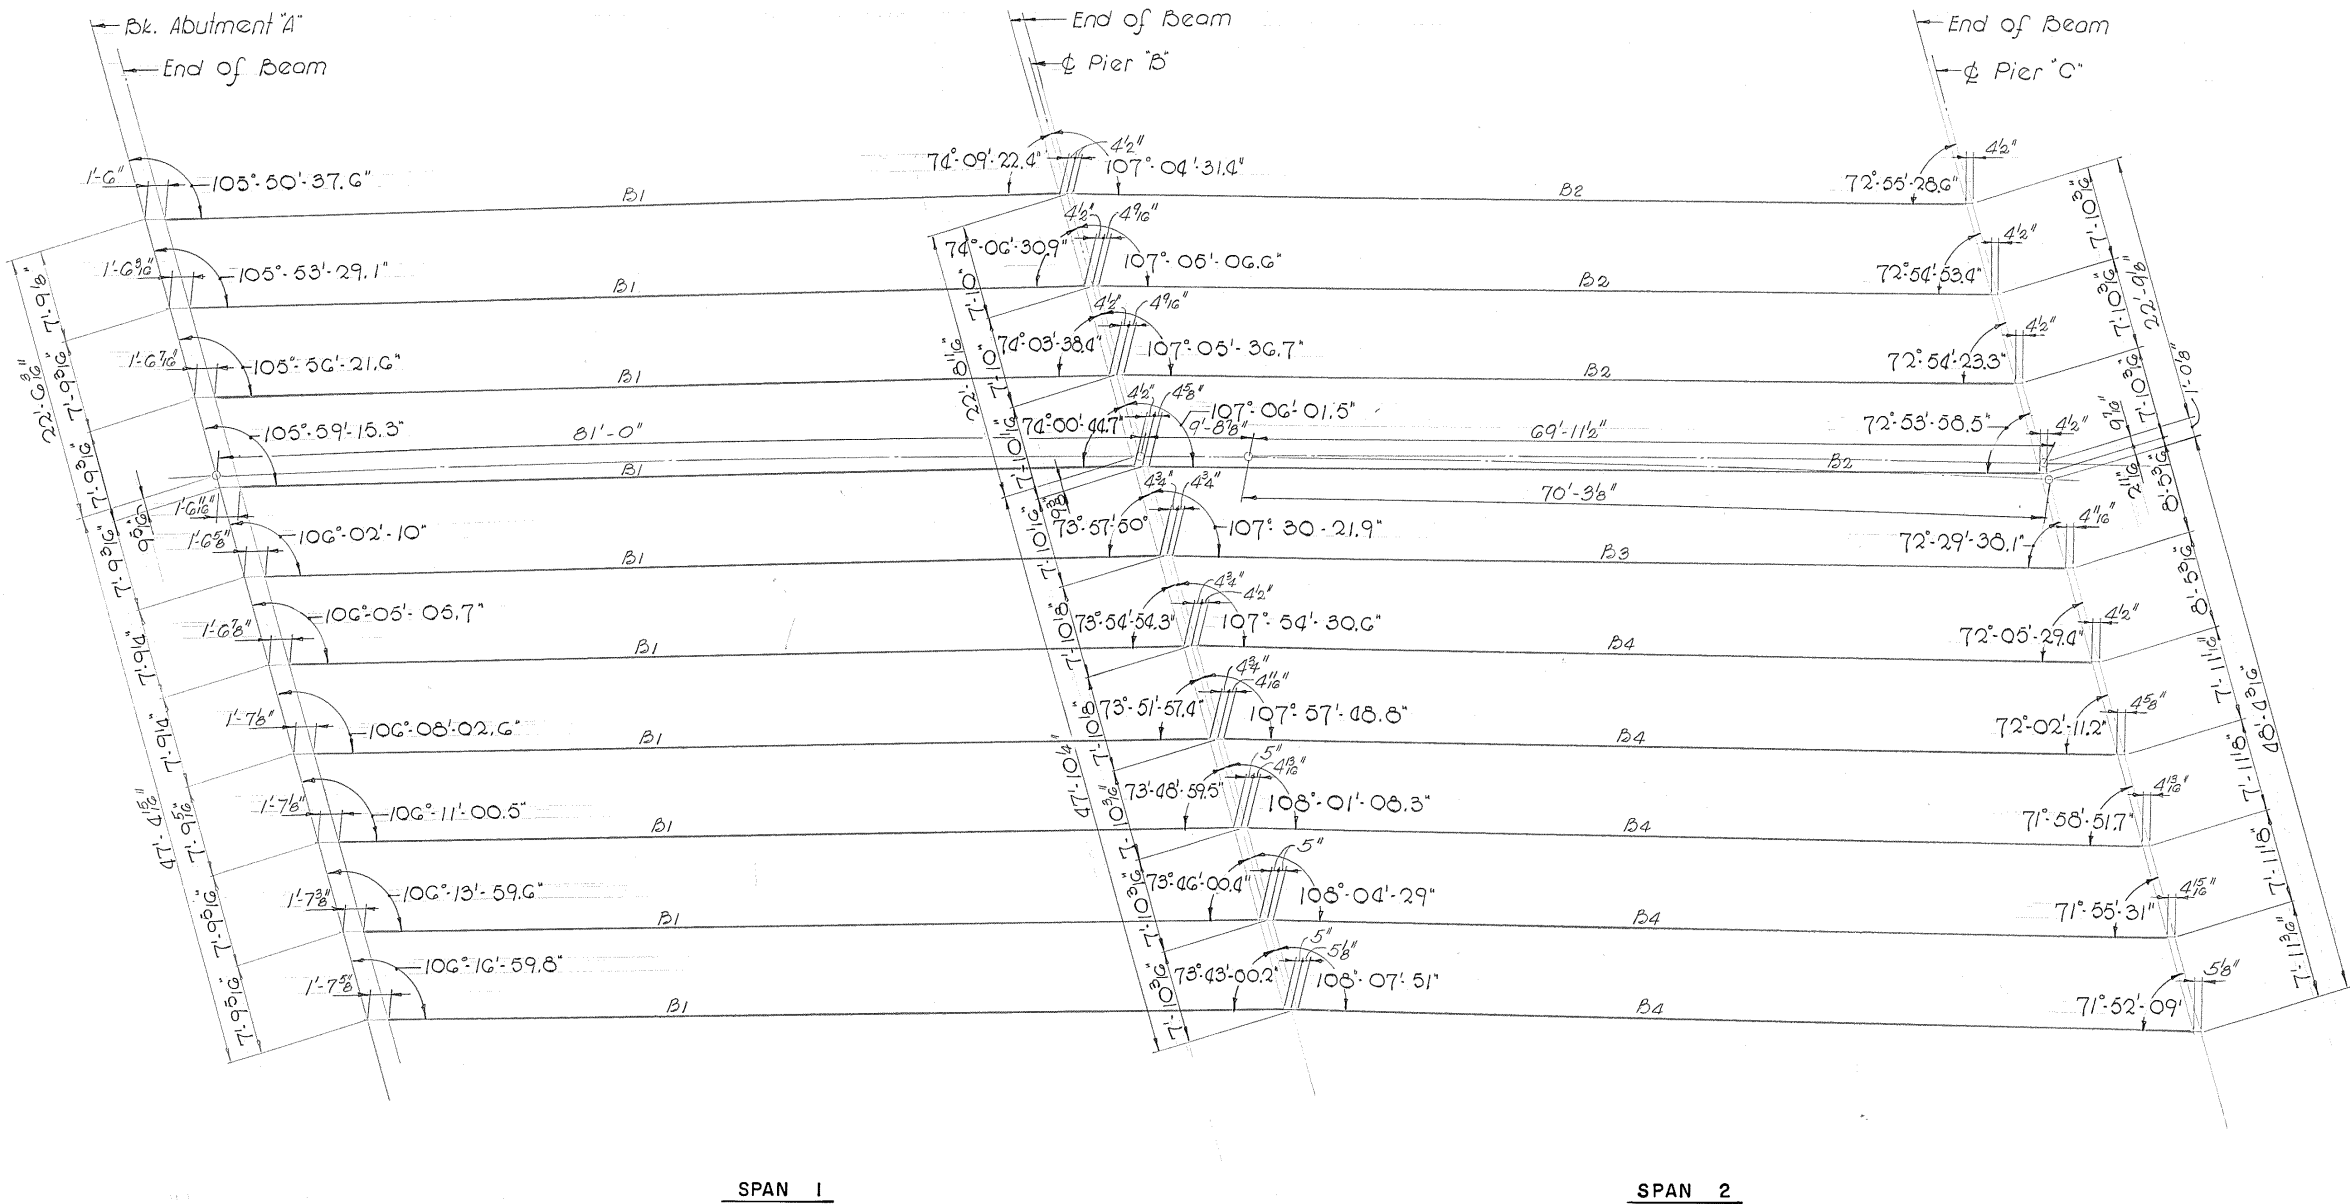 Bk. Abutment "A"
End of Beam
End of Beam
℄ Pier "B"
End of Beam
℄ Pier "C"
1'-6"
105°-50'-37.6"
B1
74°-09'-22.4"
4½"
107°-04'-31.4"
B2
72°-55'-28.6"
4½"
1'-6 3/16"
105°-53'-29.1"
B1
74°-06'-30.9"
4½"
4 9/16"
107°-05'-06.6"
B2
72°-54'-53.4"
4½"
1'-6 7/16"
105°-56'-21.6"
B1
74°-03'-38.4"
4½"
4 9/16"
107°-05'-36.7"
B2
72°-54'-23.3"
4½"
1'-6 11/16"
105°-59'-15.3"
81'-0"
B1
74°-00'-44.7"
4½"
4 5/8"
107°-06'-01.5"
9'-8 7/8"
69'-11½"
B2
70'-3 1/8"
72°-53'-58.5"
4½"
1'-6 5/8"
106°-02'-10"
B1
73°-57'-50"
4¾"
4¾"
107°-30-21.9"
B3
72°-29'-38.1"
4 11/16"
1'-6 7/8"
106°-05'-05.7"
B1
73°-54'-54.3"
4¾"
4½"
107°-54'-30.6"
B4
72°-05'-29.4"
4½"
1'-7 1/8"
106°-08'-02.6"
B1
73°-51'-57.4"
4¾"
4 11/16"
107°-57'-48.8"
B4
72°-02'-11.2"
4 5/8"
1'-7 1/8"
106°-11'-00.5"
B1
73°-48'-59.5"
5"
4 13/16"
108°-01'-08.3"
B4
71°-58'-51.7"
4 13/16"
1'-7 3/8"
106°-13'-59.6"
B1
73°-46'-00.4"
5"
108°-04'-29"
B4
71°-55'-31"
4 15/16"
1'-7 5/8"
106°-16'-59.8"
B1
73°-43'-00.2"
5"
5 1/8"
108°-07'-51"
B4
71°-52'-09'
5 1/8"
22'-0 3/16"
7'-9 1/8"
7'-9 3/16"
7'-9 3/16"
9 5/16"
7'-9 3/16"
7'-9¼"
7'-9¼"
7'-9 5/16"
7'-9 5/16"
7'-9 5/16"
47'-4 5/16"
22'-8 11/16"
7'-10"
7'-10"
7'-10 1/16"
7'-10 1/16"
7'-10 1/8"
7'-10 1/8"
7'-10 3/16"
7'-10 3/16"
7'-10 3/16"
47'-10¼"
22'-9 1/8"
7'-10 3/16"
7'-10 3/16"
7'-10 3/16"
1'-0 1/8"
9 7/16"
2 11/16"
8'-5 3/16"
8'-5 3/16"
7'-11 1/16"
7'-11 1/8"
7'-11 1/8"
7'-11 3/16"
48'-4 3/16"
SPAN 1
SPAN 2